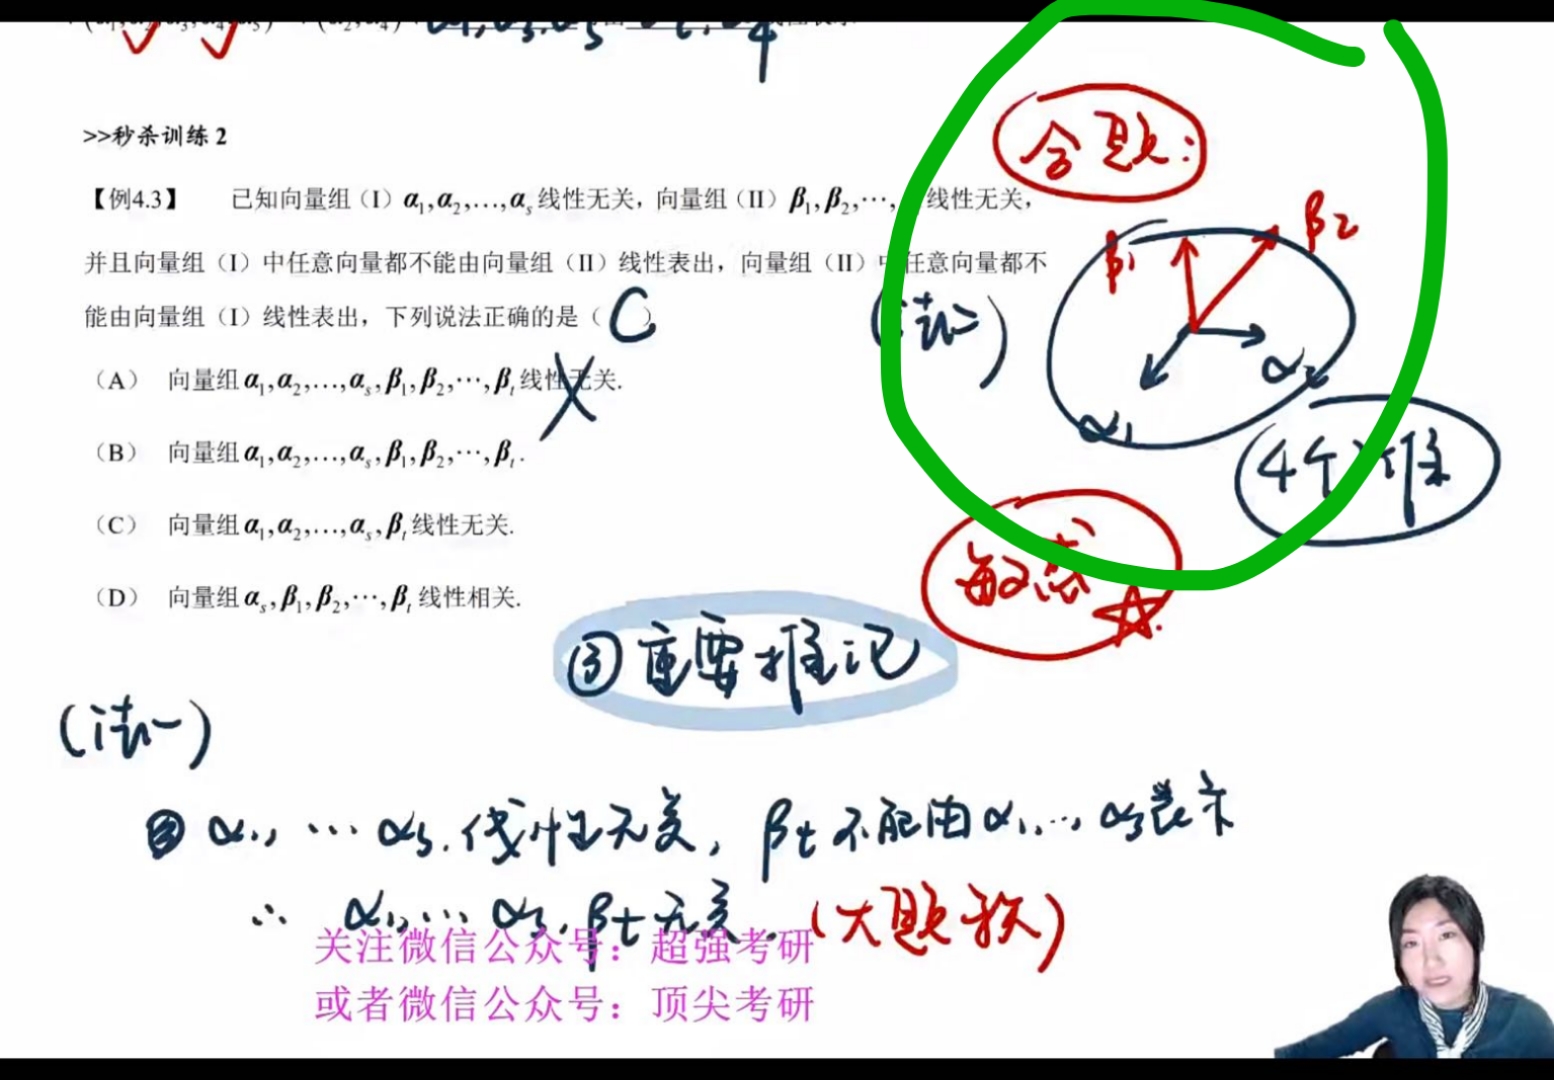 >>秒杀训练 2
【例4.3】 已知向量组（I）α₁,α₂,…,αₛ 线性无关，向量组（II）β₁,β₂,⋯, 线性无关，
并且向量组（I）中任意向量都不能由向量组（II）线性表出，向量组（II）中任意向量都不
能由向量组（I）线性表出，下列说法正确的是（ C ）
（A） 向量组 α₁,α₂,…,αₛ,β₁,β₂,⋯,βₜ 线性无关.
（B） 向量组 α₁,α₂,…,αₛ,β₁,β₂,⋯,βₜ.
（C） 向量组 α₁,α₂,…,αₛ,βₜ 线性无关.
（D） 向量组 αₛ,β₁,β₂,⋯,βₜ 线性相关.
题:
β₁ β₂
(法二)
α₁ α₂
4个
敏感
③重要推论
(法一)
α₁, … αₛ. 线性无关, βₜ不能由α₁,…, αₛ表示
∴ α₁, … αₛ, βₜ无关. (大题秒)
关注微信公众号：超强考研
或者微信公众号：顶尖考研